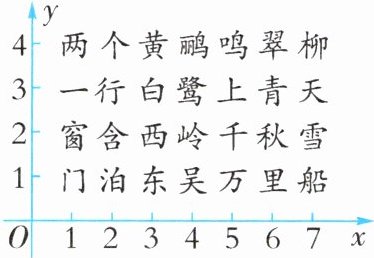 y
4 两个黄鹂鸣翠柳
3 一行白鹭上青天
2 窗含西岭千秋雪
1 门泊东吴万里船
O 1 2 3 4 5 6 7 x